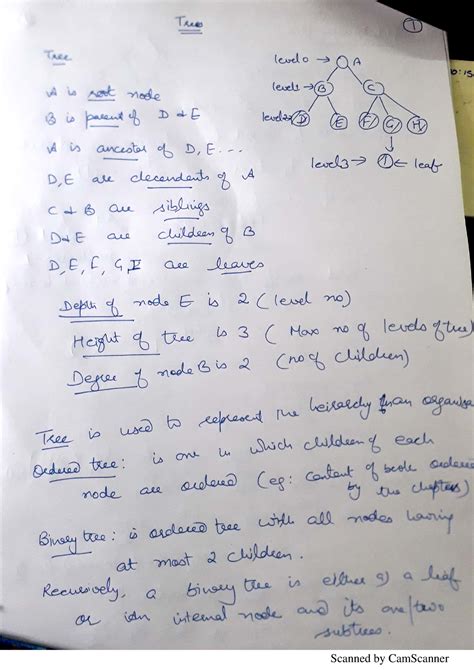 Trees
1
Tree
level0 → A
level1 → B C
level2 → D E F G H
level3 → I ← leaf
A is root node
B is parent of D & E
A is ancestor of D, E ...
D, E are decendents of A
C & B are siblings
D&E are children of B
D, E, F, G, I are leaves
Depth of node E is 2 (level no)
Height of tree is 3 (Max no of levels of tree)
Degree of node B is 2 (no of children)
Tree is used to represent the heirarchy of an organisa
Ordered tree: is one in which children of each
node are ordered (eg: content of book ordered
by the chapters)
Binary tree: is ordered tree with all nodes having
at most 2 children.
Recursively, a binary tree is either a leaf
or is an internal node and its one/two
subtrees.
Scanned by CamScanner